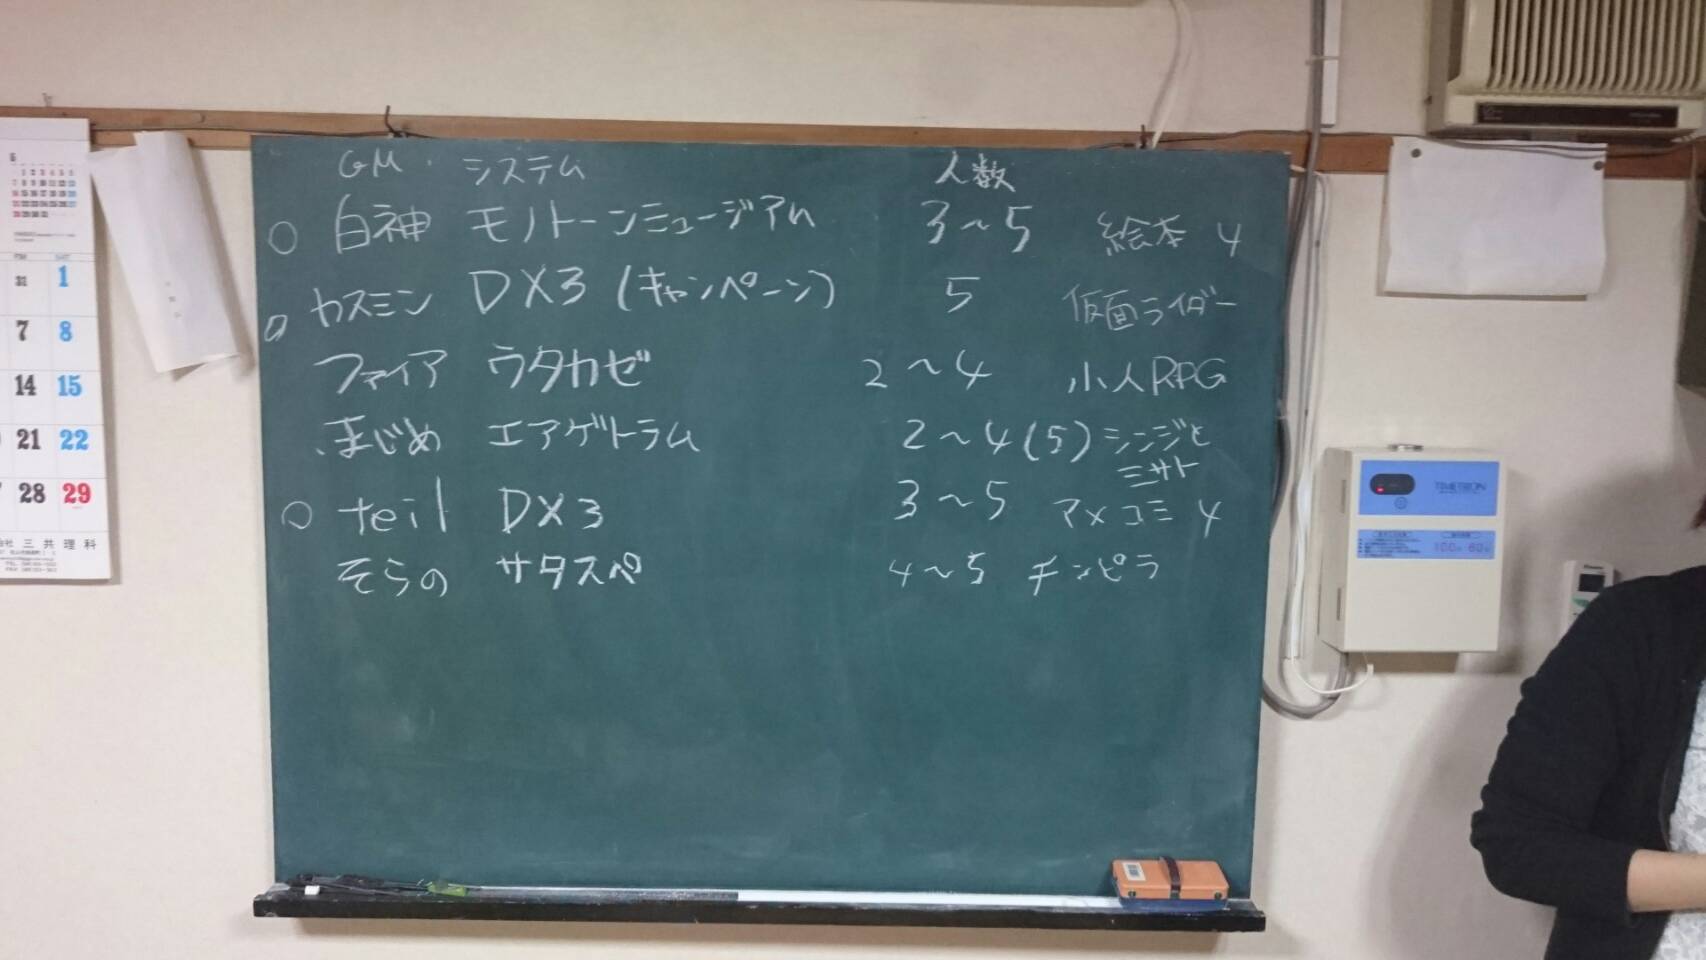 GM システム 人数
○ 白神 モノトーンミュージアム 3～5 絵本 4
○ カスミン DX3 (キャンペーン) 5 仮面ライダー
ファイア ウタカゼ 2～4 小人RPG
まじめ エアゲトラム 2～4(5) シンジと
ミサト
○ teil DX3 3～5 アメコミ 4
そらの サタスペ 4～5 チンピラ
6
31 1
7 8
14 15
21 22
28 29
三共理科
TIMETRON